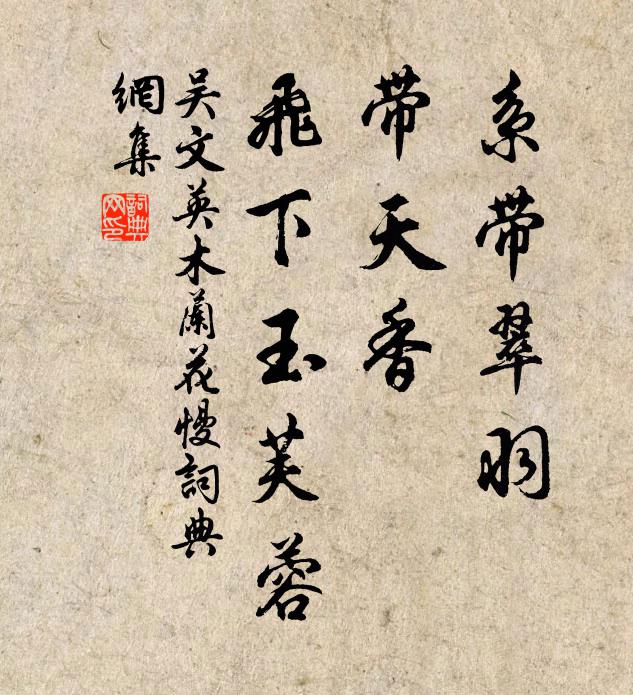 系帶翠羽
帶天香
飛下玉芙蓉
吳文英木蘭花慢詞典
網集
詞典
网印